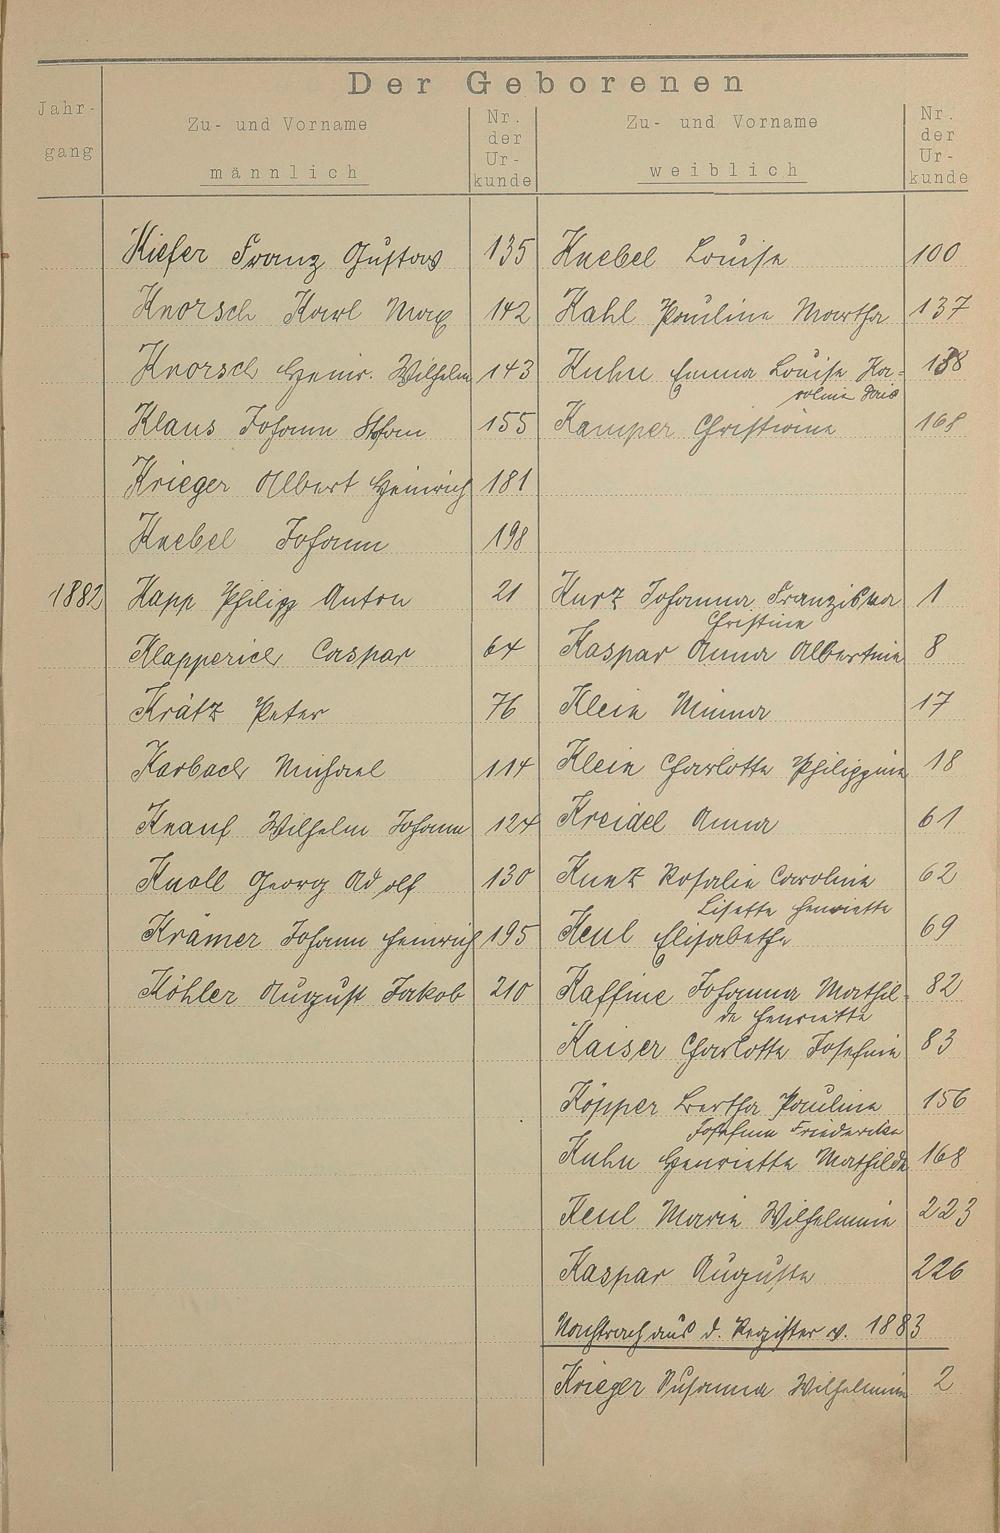 Der Geborenen
Jahr-
gang
Zu- und Vorname
männlich
Nr.
der
Ur-
kunde
Zu- und Vorname
weiblich
Nr.
der
Ur-
kunde
Kiefer Franz Gustav 135 Knebel Louise 100
Knorsch Karl Max 142 Kahl Pauline Martha 137
Knorsch Heinr. Wilhelm 143 Kuhn Emma Louise Ka- 138
roline
Klaus Johann 155 Kamper Christine 168
Krieger Albert Heinrich 181
Knebel Johann 198
1882 Kapp Philipp Anton 21 Kurz Johanna Franziska 1
Christine
Klapperich Caspar 64 Kaspar Anna Albertine 8
Krätz Peter 76 Klein Minna 17
Karbach Michael 114 Klein Charlotte Philippine 18
Knauf Wilhelm Johann 124 Kreidel Anna 61
Knoll Georg Adolf 130 Kunz Rosalie Caroline 62
Lisette Henriette
Krämer Johann Heinrich 195 Keul Elisabetha 69
Köhler August Jakob 210 Kaffine Johanna Mathil- 82
de Henriette
Kaiser Charlotte Josefine 83
Köpper Bertha Pauline 156
Josefine Friedericke
Kuhn Henriette Mathilde 168
Keul Maria Wilhelmine 223
Kaspar Auguste 226
Nachtrag aus d. Register v. 1883
Krieger Susanna Wilhelmine 2